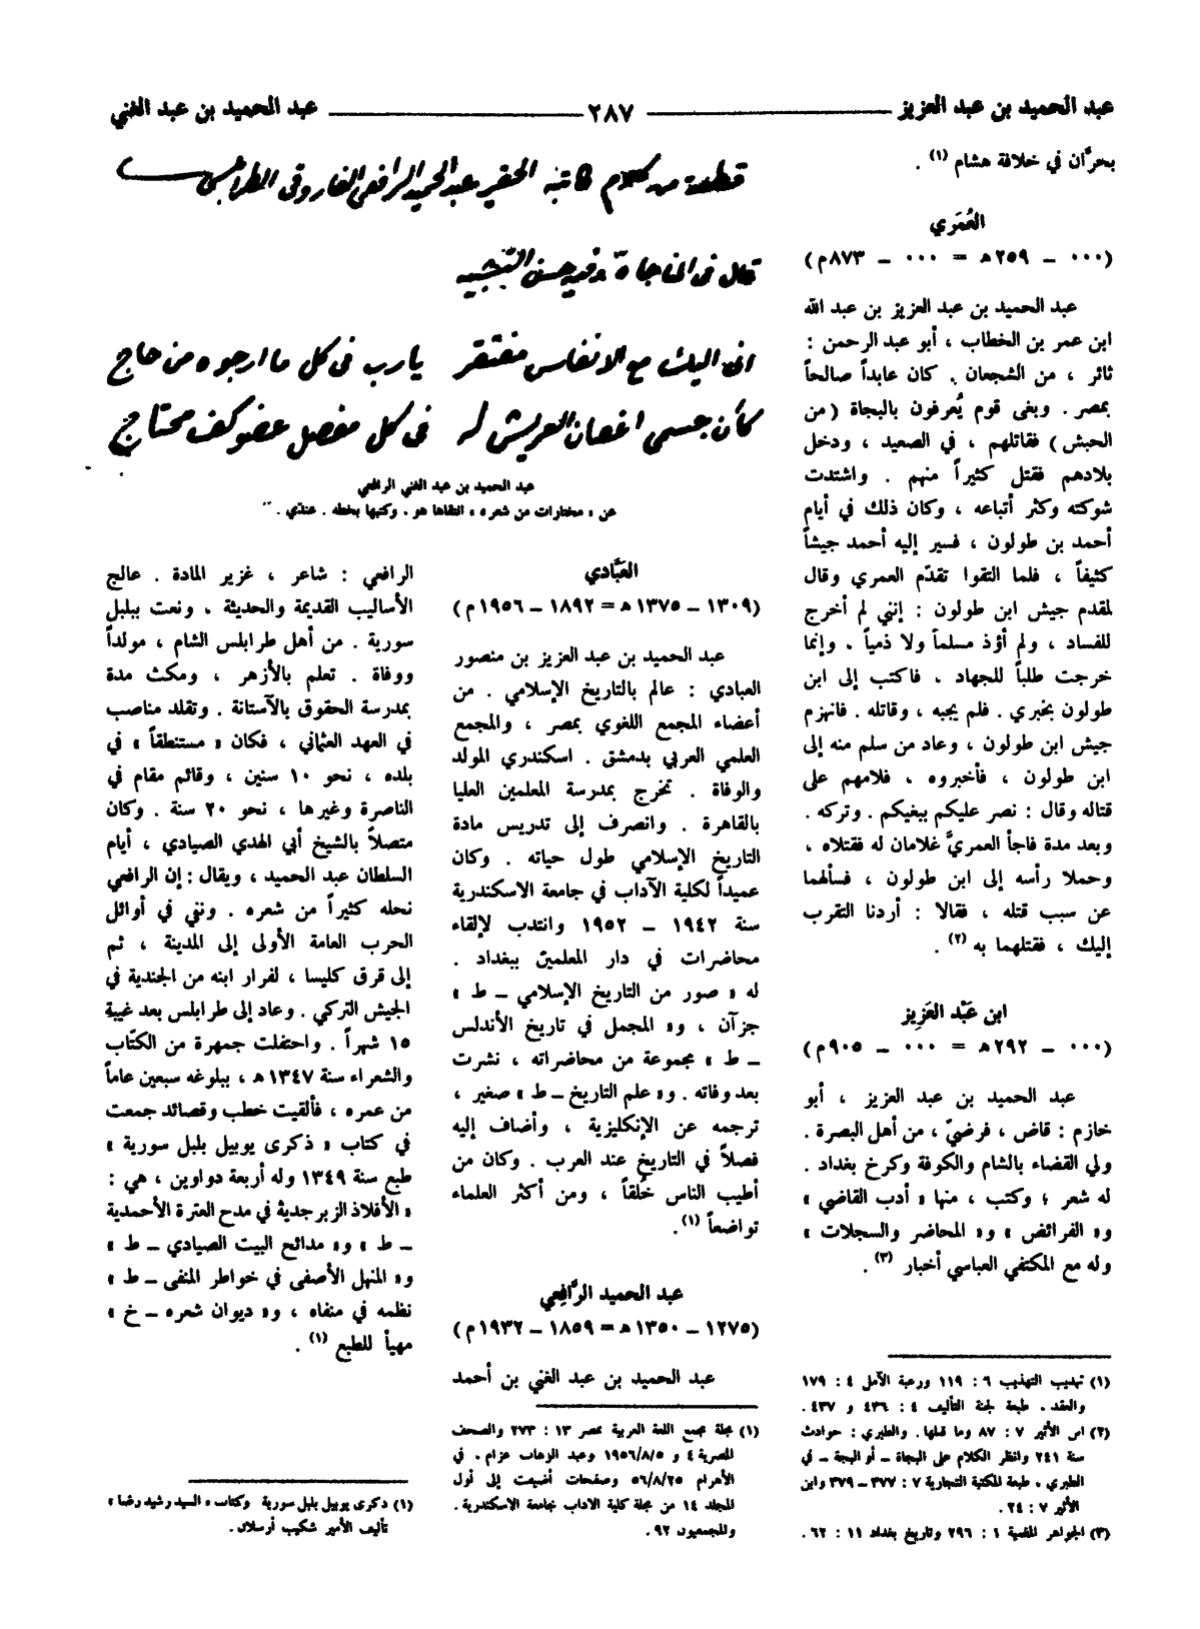 عبد الحميد بن عبد العزيز ــــ ٢٨٧ ــــ عبد الحميد بن عبد الغني
بحرَّان في خلافة هشام (١) .
العُمَري
(٠٠٠ – ٢٥٩ه = ٠٠٠ – ٨٧٣م)
عبد الحميد بن عبد العزيز بن عبد الله
ابن عمر بن الخطاب ، أبو عبد الرحمن :
ثائر ، من الشجعان . كان عابداً صالحاً
بمصر . وبغى قوم يُعرفون بالبجاة (من
الحبش) فقاتلهم ، في الصعيد ، ودخل
بلادهم فقتل كثيراً منهم . واشتدت
شوكته وكثر أتباعه ، وكان ذلك في أيام
أحمد بن طولون ، فسير إليه أحمد جيشاً
كثيفاً ، فلما التقوا تقدّم العمري وقال
لمقدم جيش ابن طولون : إنني لم أخرج
للفساد ، ولم أؤذ مسلماً ولا ذمياً . وإنما
خرجت طلباً للجهاد ، فاكتب إلى ابن
طولون بخبري . فلم يجبه ، وقاتله . فانهزم
جيش ابن طولون ، وعاد من سلم منه إلى
ابن طولون ، فأخبروه ، فلامهم على
قتاله وقال : نصر عليكم ببغيكم . وتركه .
وبعد مدة فاجأ العمريَّ غلامان له فقتلاه ،
وحملا رأسه إلى ابن طولون ، فسألهما
عن سبب قتله ، فقالا : أردنا التقرب
إليك ، فقتلهما به (٢) .
ابن عَبْد العَزِيز
(٠٠٠ – ٢٩٢ه = ٠٠٠ – ٩٠٥م)
عبد الحميد بن عبد العزيز ، أبو
خازم : قاض ، فرضيّ ، من أهل البصرة .
ولي القضاء بالشام والكوفة وكرخ بغداد .
له شعر ؛ وكتب ، منها « أدب القاضي »
و« الفرائض » و« المحاضر والسجلات »
وله مع المكتفي العباسي أخبار (٣) .
(١) تهذيب التهذيب ٦ : ١١٩ ورغبة الآمل ٤ : ١٧٩
والعقد . طبعة لجنة التأليف ٤ : ٤٣٦ و ٤٣٧ .
(٢) ابن الأثير ٧ : ٨٧ وما قبلها . والطبري : حوادث
سنة ٢٤١ وانظر الكلام على البجاة – أو البجة – في
الطبري . طبعة المكتبة التجارية ٧ : ٣٧٧ – ٣٧٩ وابن
الأثير ٧ : ٢٤ .
(٣) الجواهر المضية ١ : ٢٩٦ وتاريخ بغداد ١١ : ٦٢ .
قطعة من كلام كاتبه الحقير عبد الحميد الرافعي الفاروقي الطرابلسي
قال في المناجاة وفيه حسن التشبيه
اني اليك مع الانفاس مفتقر يارب في كل ما ارجوه من حاج
كأن جسمي اغصان العريش له في كل مفصل عضو كف محتاج
عبد الحميد بن عبد الغني الرافعي
عن « مختارات من شعره » انتقاها هو . وكتبها بخطه . عندي .
العَبَّادي
(١٣٠٩ – ١٣٧٥ه = ١٨٩٢ – ١٩٥٦م)
عبد الحميد بن عبد العزيز بن منصور
العبادي : عالم بالتاريخ الإسلامي . من
أعضاء المجمع اللغوي بمصر ، والمجمع
العلمي العربي بدمشق . اسكندري المولد
والوفاة . تخرج بمدرسة المعلمين العليا
بالقاهرة . وانصرف إلى تدريس مادة
التاريخ الإسلامي طول حياته . وكان
عميداً لكلية الآداب في جامعة الاسكندرية
سنة ١٩٤٢ – ١٩٥٢ وانتدب لإلقاء
محاضرات في دار المعلمين ببغداد .
له « صور من التاريخ الإسلامي – ط »
جزآن ، و« المجمل في تاريخ الأندلس
– ط » مجموعة من محاضراته ، نشرت
بعد وفاته . و« علم التاريخ – ط » صغير ،
ترجمه عن الإنكليزية ، وأضاف إليه
فصلاً في التاريخ عند العرب . وكان من
أطيب الناس خُلقاً ، ومن أكثر العلماء
تواضعاً (١) .
عبد الحميد الرَّافِعي
(١٢٧٥ – ١٣٥٠ه = ١٨٥٩ – ١٩٣٢م)
عبد الحميد بن عبد الغني بن أحمد
(١) مجلة مجمع اللغة العربية بمصر ١٣ : ٢٧٣ والصحف
المصرية ٤ و ١٩٥٦/٨/٥ وعبد الوهاب عزام . في
الأهرام ٥٦/٨/٢٥ وصفحات أضيفت إلى أول
المجلد ١٤ من مجلة كلية الاداب بجامعة الاسكندرية .
والمجمعيون ٩٢ .
الرافعي : شاعر ، غزير المادة . عالج
الأساليب القديمة والحديثة ، ونعت ببلبل
سورية . من أهل طرابلس الشام ، مولداً
ووفاة . تعلم بالأزهر ، ومكث مدة
بمدرسة الحقوق بالآستانة . وتقلد مناصب
في العهد العثماني ، فكان « مستنطقاً » في
بلده ، نحو ١٠ سنين ، وقائم مقام في
الناصرة وغيرها ، نحو ٢٠ سنة . وكان
متصلاً بالشيخ أبي الهدي الصيادي ، أيام
السلطان عبد الحميد ، ويقال : إن الرافعي
نحله كثيراً من شعره . ونفي في أوائل
الحرب العامة الأولى إلى المدينة ، ثم
إلى قرق كليسا ، لفرار ابنه من الجندية في
الجيش التركي . وعاد إلى طرابلس بعد غيبة
١٥ شهراً . واحتفلت جمهرة من الكتّاب
والشعراء سنة ١٣٤٧ه ، ببلوغه سبعين عاماً
من عمره ، فألقيت خطب وقصائد جمعت
في كتاب « ذكرى يوبيل بلبل سورية »
طبع سنة ١٣٤٩ وله أربعة دواوين ، هي :
« الأفلاذ الزبرجدية في مدح العترة الأحمدية
– ط » و« مدائح البيت الصيادي – ط »
و« المنهل الأصفى في خواطر المنفى – ط »
نظمه في منفاه ، و« ديوان شعره – خ »
مهيأ للطبع (١) .
(١) ذكرى يوبيل بلبل سورية وكتاب « السيد رشيد رضا »
تأليف الأمير شكيب أرسلان .